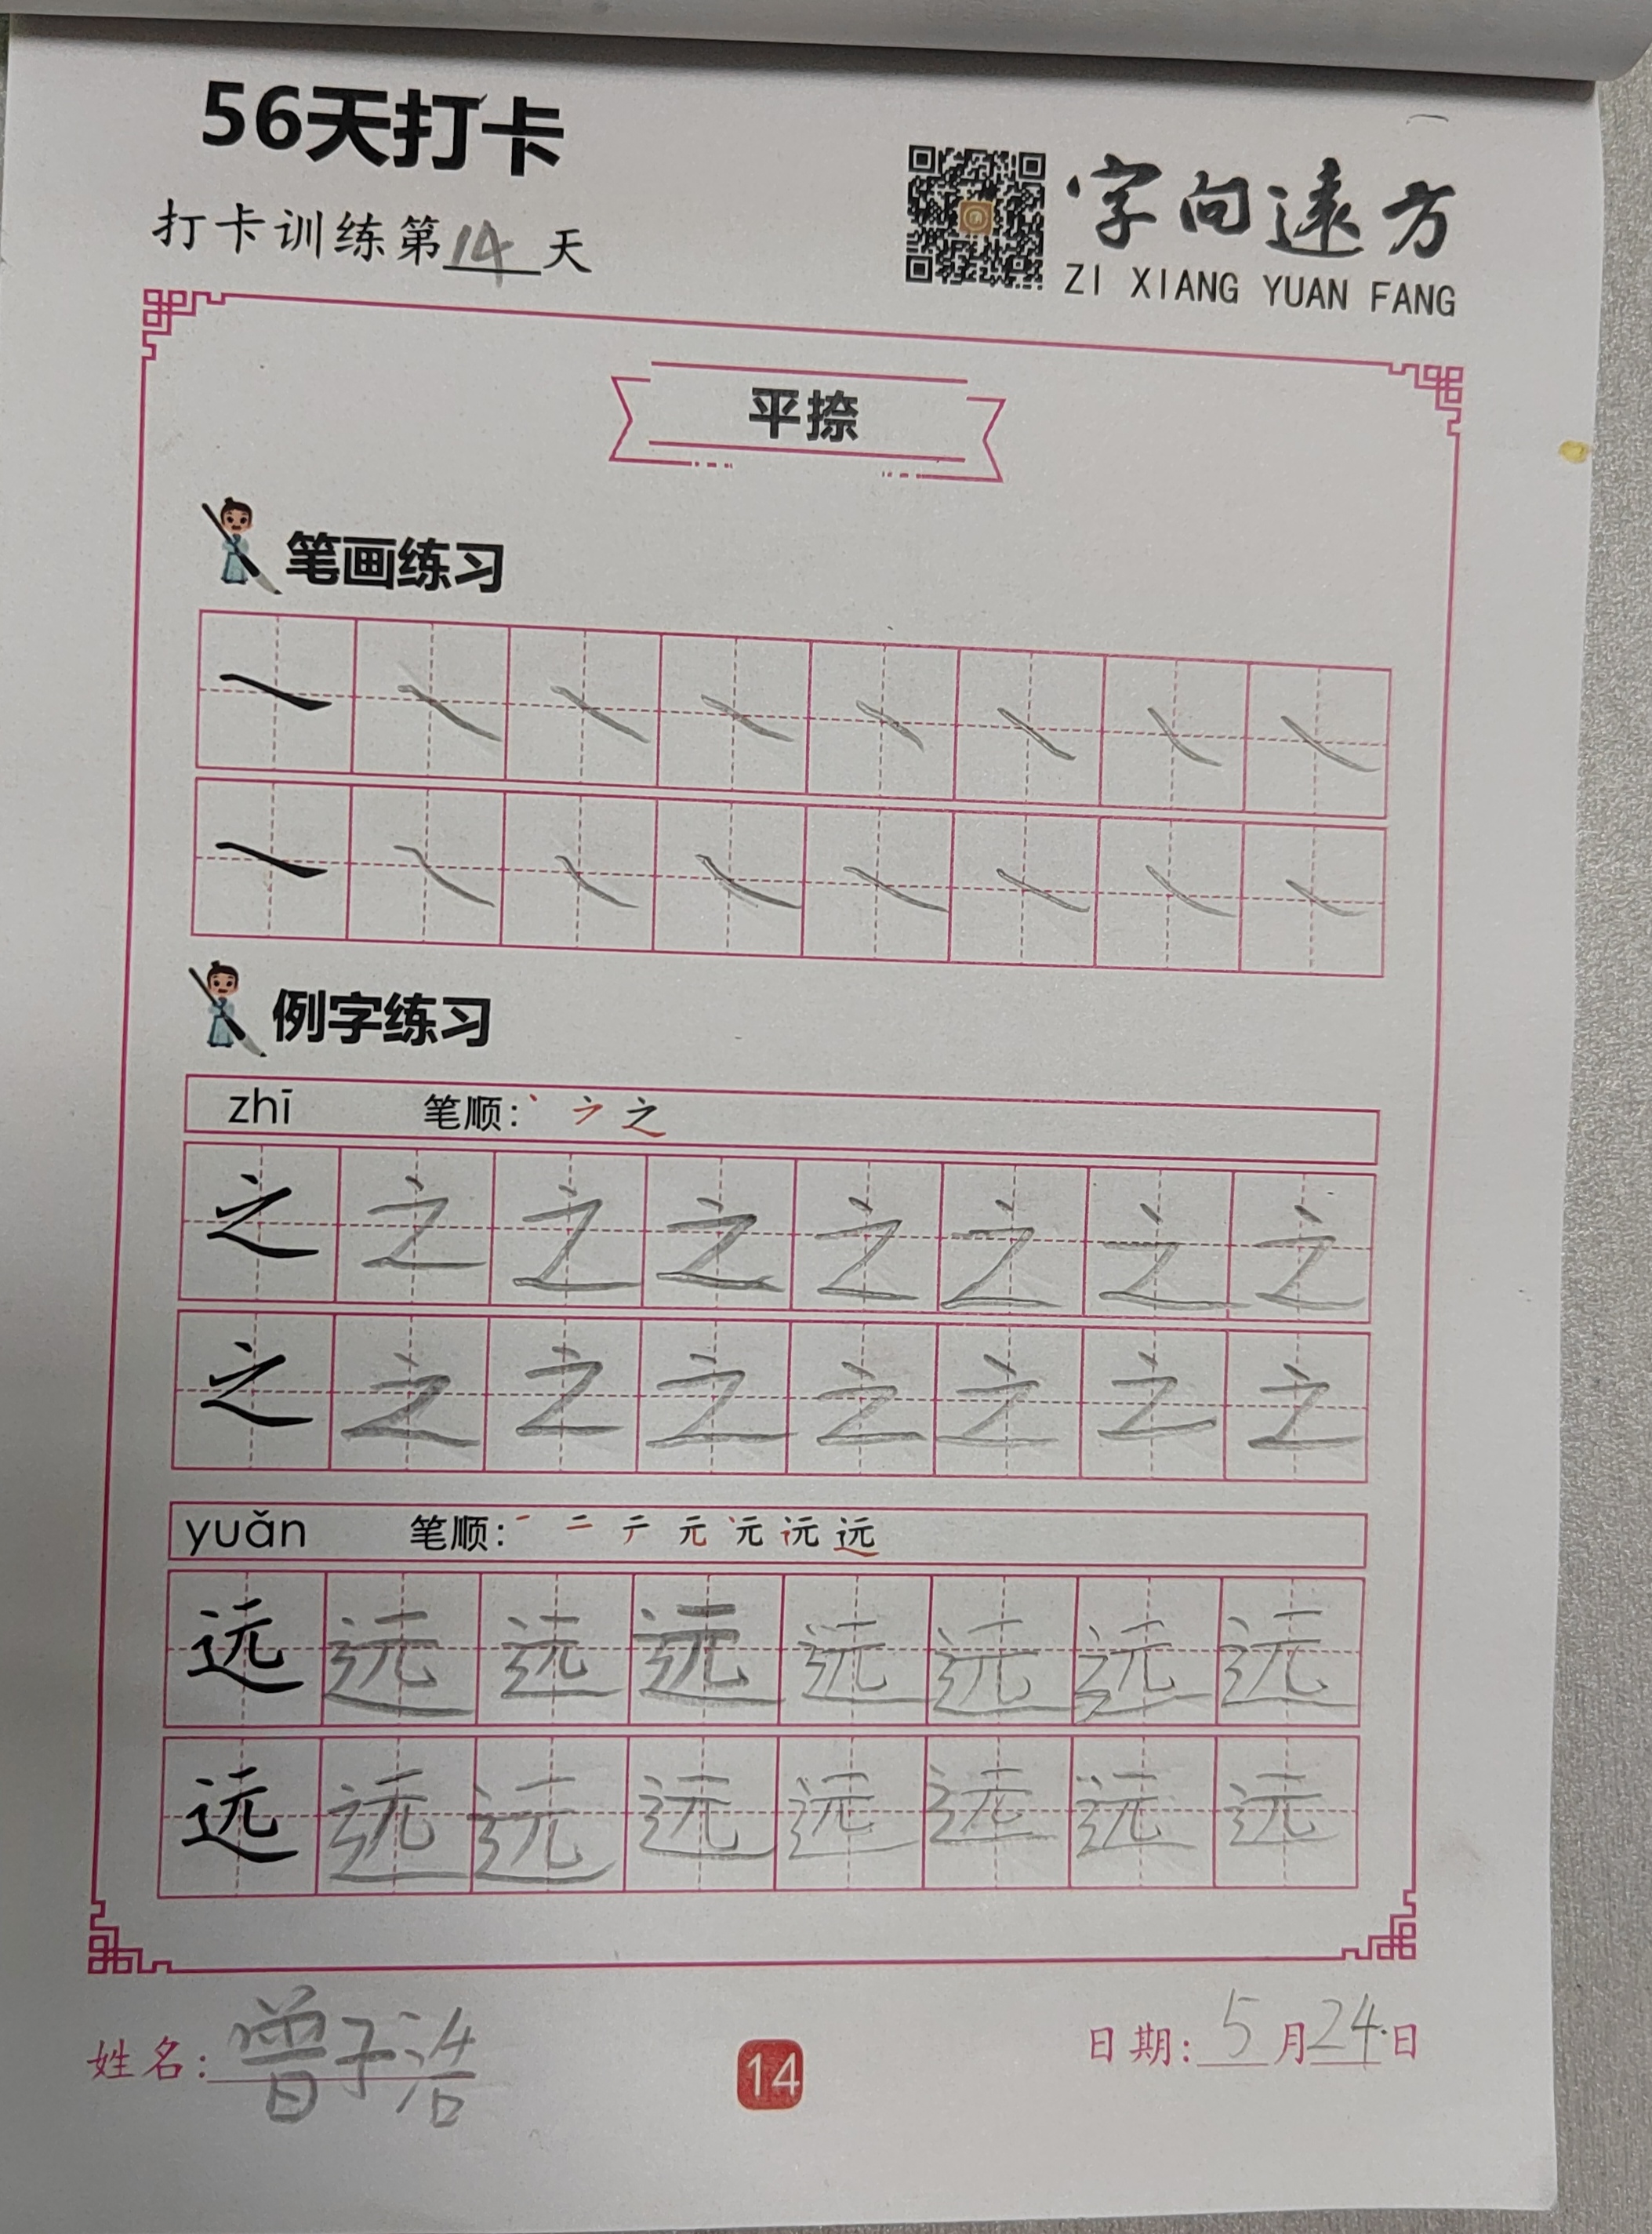 56天打卡
打卡训练第14天
字向远方
ZI XIANG YUAN FANG
平捺
笔画练习
例字练习
zhī 笔顺: 丶 之
之 之 之 之 之 之 之 之
之 之 之 之 之 之 之 之
yuǎn 笔顺: 一 二 元 远
远 远 远 远 远 远 远 远
远 远 远 远 远 远 远 远
姓名: 曾子浩
14
日期: 5月24日